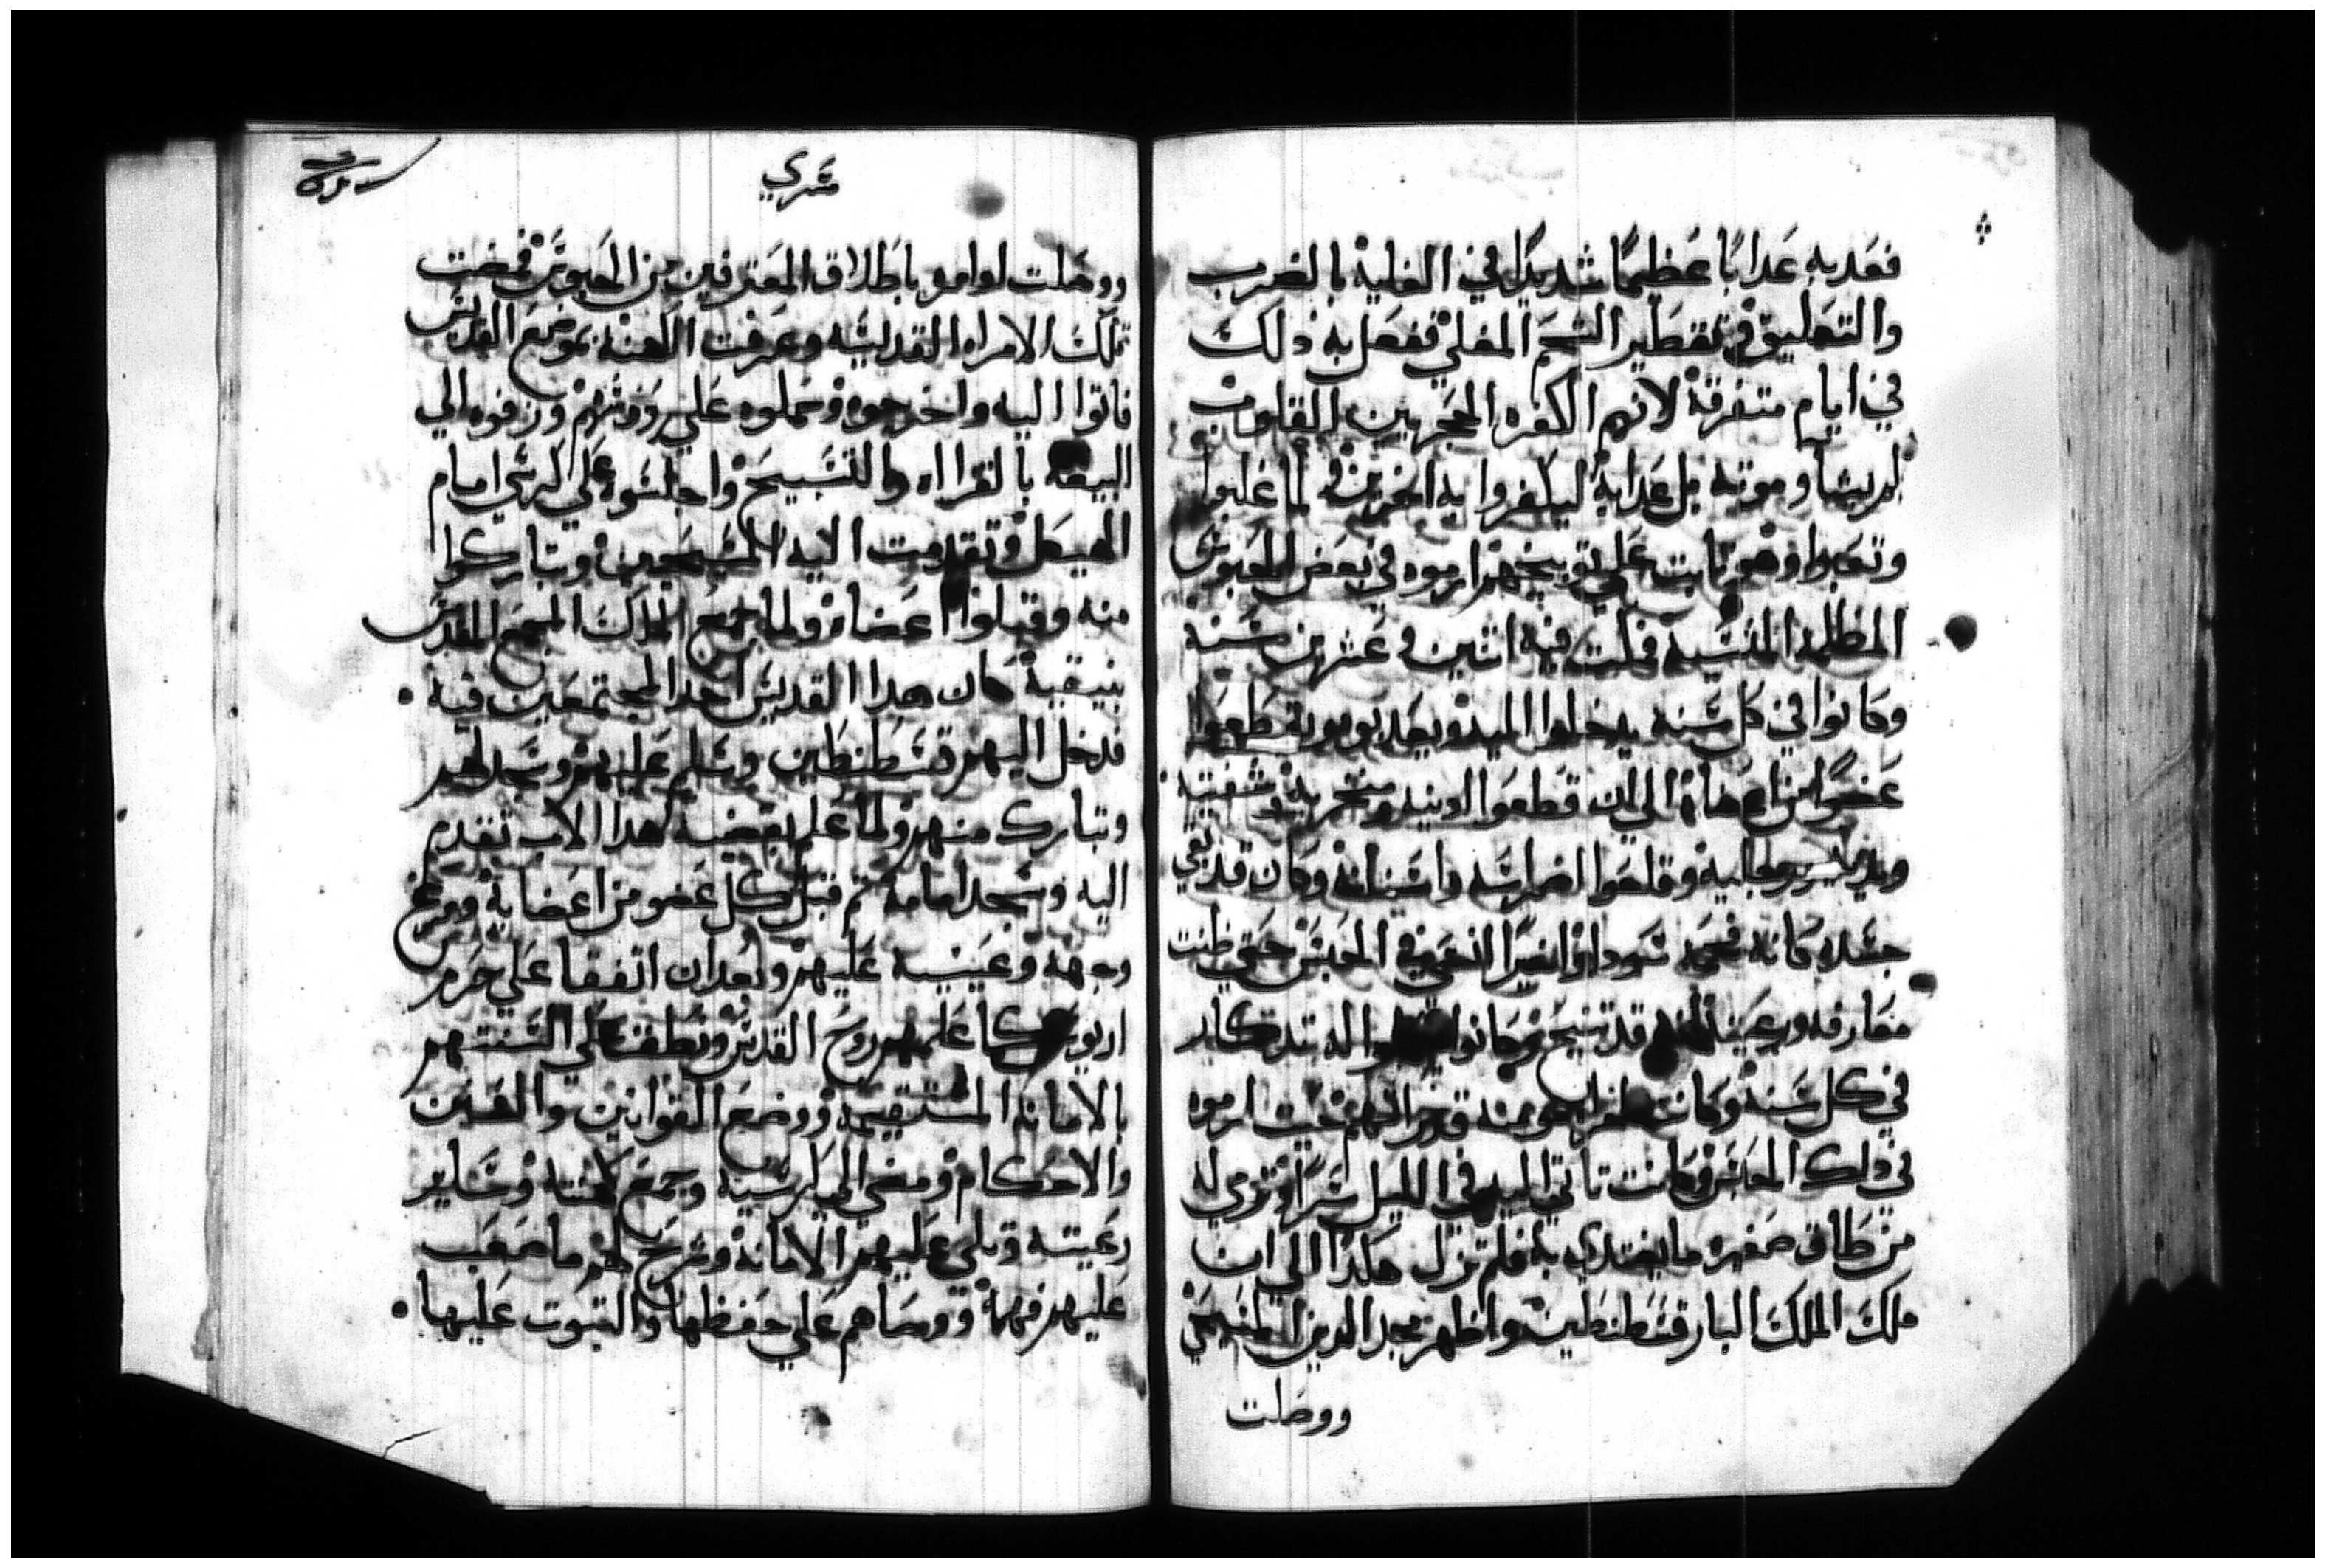 فعدبه عدابًا عظيمًا شديدًا في الغاية بالضرب
والتعليق وتقطير الشحم المغلي ففعل به دلك
في ايام متفرقة لانهم الكفره المتحجرين القلوب
لم يشا موته بل عدابه ليكفروا به اخرين فلما غلبوا
وتعبوا وهو ثابت علي توبيخهم ارموه في بعض الحبوس
المظلمه المنسيه فمكت فيه اثنين وعشرين سنه
وكانوا في كل سنه يدخلوا اليه ويعدبوه ويقطعوا
عضوًا من اعضاة الي ان قطعوا ادنيه ومنخريه وشفتيه
ويديه ورجليه وقلعوا اضراسه واسنانه وكان قد بقي
جسده كانه فحمه سودا واخيرًا اختفي في الحبس حتي ظنت
معارفه ورعيته انه قد تنيح وكانوا له تدكار
في كل سنه وكانت امراه مومنه قد راتهم حيت ارموه
في دلك الحبس وكانت تاتي اليه في الليل سرًا وترمي له
من طاق صغيره ما يغتدي به فلم تزل هكدا الي ان
ملك الملك البار قسطنطين واظهر مجد الدين المسيحي
ووصلت
سري
ووصلت اوامره باطلاق المعترفين من الحبوس فمضت
تلك الامراه القديسه وعرفت الكهنه بموضع القديس
فاتوا اليه واخرجوه وحملوه علي رووسهم وزفوه الي
البيعة بالقرااه والتسبيح واجلسوه علي الكرسي امام
الهيكل وتقدمت اليه المسيحيين وتباركوا
منه وقبلوا اعضاه ولما جمع الملك المجمع المقدس
بنيقية كان هدا القديس احد المجتمعين فيه •
فدخل اليهم قسطنطين وسلم عليهم وسجد لهم
وتبارك منهم ولما علم بقضية هدا الاب تقدم
اليه وسجد امامه تم قبل كل عضو من اعضايه ومرغ
وجهه وعينيه عليهم وبعد ان اتفقا علي حرم
اريوس كما علمهم روح القدس ونطق علي السنتهم
بالامانه المستقيمه ووضع القوانين والسنن
والاحكام ومضي الي كرسيه وجمع كهنته وساير
رعيته وتلي عليهم الامانه وشرح لهم ما صعب
عليهم فهمه ووصاهم علي حفظها والتبوت عليها •